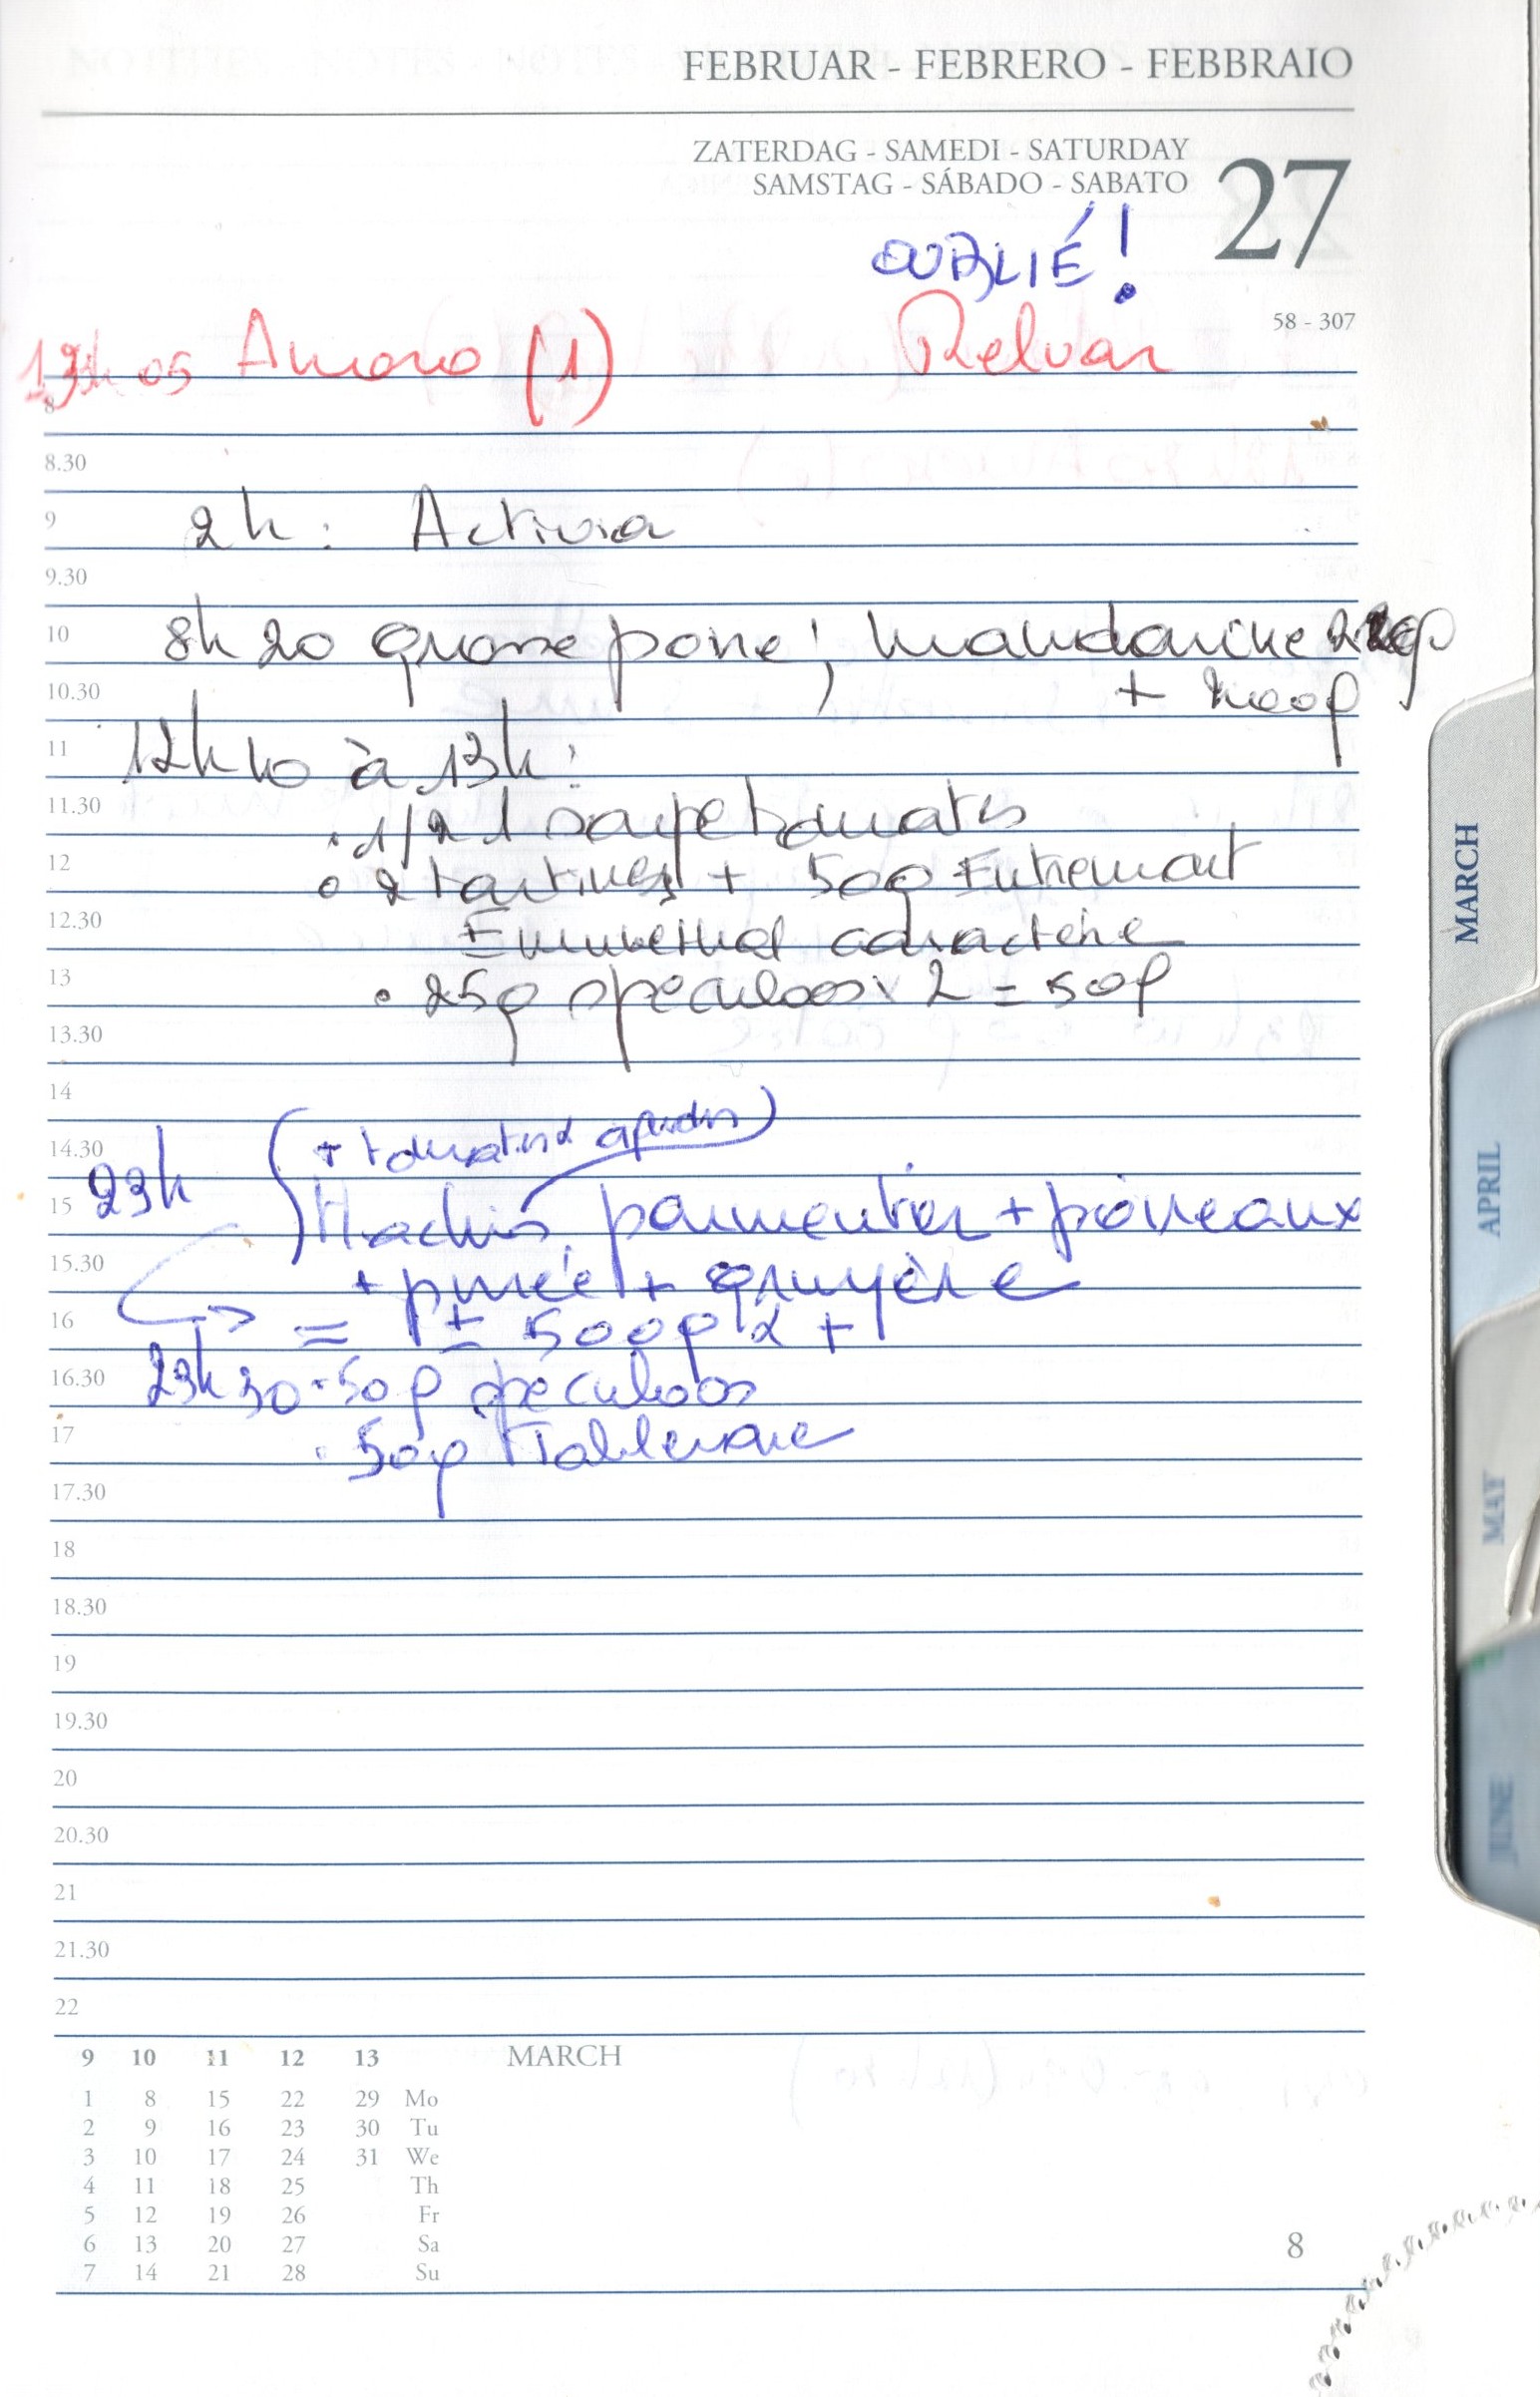 FEBRUAR - FEBRERO - FEBBRAIO
ZATERDAG - SAMEDI - SATURDAY
SAMSTAG - SÁBADO - SABATO
27
OUBLIÉ!
58 - 307
05 Amaro (1) Relvar
8
8.30
9 2h : Activia
9.30
10 8h20 grosse poire, mandarine
10.30 +
11 12h10 à 13h :
11.30 . 1/2 l soupe tomates
12 o 2 tartines + 50g Entremont
12.30 Emmenthal caractère
13 • 25g speculoos x 2 = 50g
13.30
14
14.30 (+ tomates &
15 23h Hachis parmentier + poireaux
15.30 + purée + gruyère
16 = ± 500g
16.30 23h30 . 50g speculoos
17 . 50g
17.30
18
18.30
19
19.30
20
20.30
21
21.30
22
9 10 11 12 13 MARCH
1 8 15 22 29 Mo
2 9 16 23 30 Tu
3 10 17 24 31 We
4 11 18 25 Th
5 12 19 26 Fr
6 13 20 27 Sa
7 14 21 28 Su
8
MARCH
APRIL
MAY
JUNE